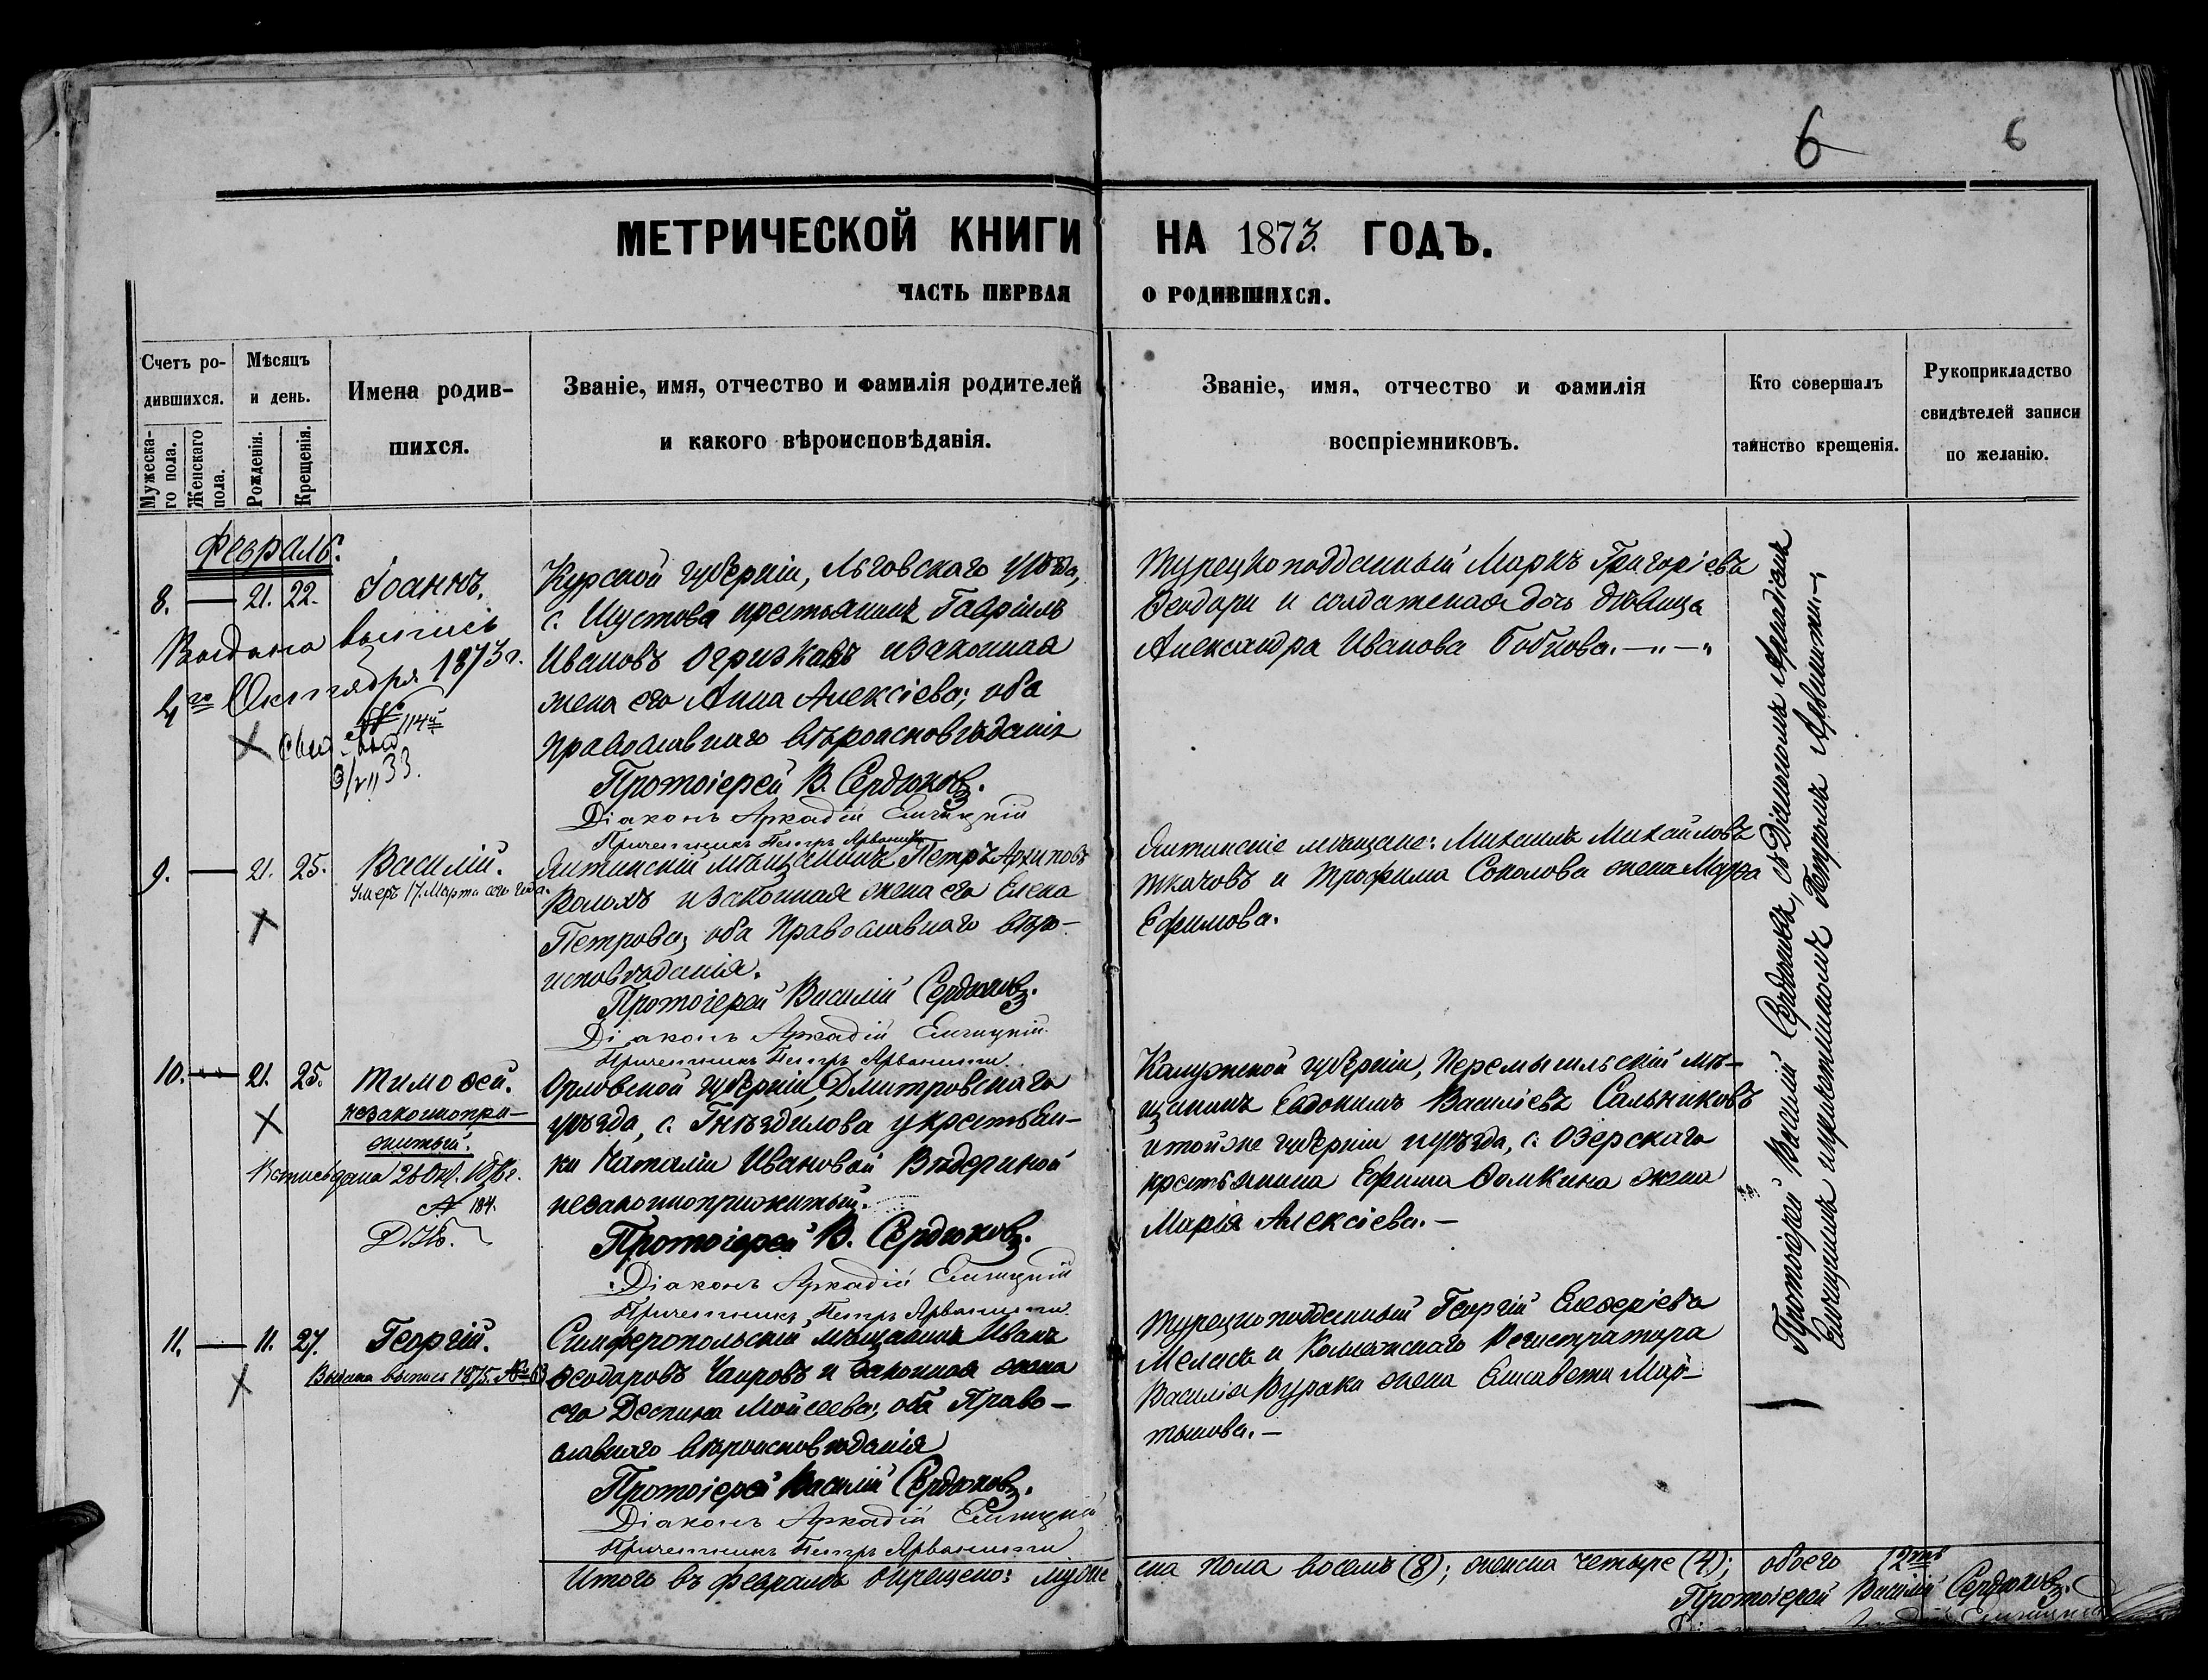 6
6
МЕТРИЧЕСКОЙ КНИГИ НА 1873. ГОДЪ.
ЧАСТЬ ПЕРВАЯ О РОДИВШИХСЯ.
Счетъ ро-
дившихся.
Мужеска-
го пола.
Женскаго
пола.
Мѣсяцъ
и день.
Рожденія.
Крещенія.
Имена родив-
шихся.
Званіе, имя, отчество и фамилія родителей
и какого вѣроисповѣданія.
Званіе, имя, отчество и фамилія
воспріемниковъ.
Кто совершалъ
таинство крещенія.
Рукоприкладство
свидѣтелей записи
по желанію.
Февраль.
8. — 21. 22. Іоаннъ.
Выдана выпись
4го Октября 1873 г.
№ 114й
33.
Курской губерніи, Льговскаго уѣзда,
с. Шустова крестьянинъ Гавріилъ
Ивановъ Огризковъ и законная
жена его Анна Алексіева; оба
православнаго вѣроисповѣданія
Протоіерей В. Сердюковъ.
Діаконъ Аркадій
Причетникъ Петръ Арванити
Турецкоподданный Маркъ Григоріевъ
Ѳеодори и солдатская дочь дѣвица
Александра Иванова Бобкова. —„—„
9. — 21. 25. Василій.
Умеръ 17. Марта сего года.
Ялтинскій мѣщанинъ Петръ Архиповъ
Волохъ и законная жена его Елена
Петрова; оба Православнаго вѣро-
исповѣданія.
Протоіерей Василій Сердюковъ.
Діаконъ Аркадій
Причетникъ Петръ Арванити
Ялтинскіе мѣщане: Михаилъ Михайловъ
Ткачовъ и Трофима Соколова жена Марѳа
Ефимова.
10. — 21. 25. Тимоѳей.
незаконопри-
житый.
№ 184.
Орловской губерніи Дмитровскаго
уѣзда, с. Гнѣздилова у крестьян-
ки Наталіи Ивановой
незаконноприжитый.
Протоіерей В. Сердюковъ.
Діаконъ Аркадій
Причетникъ Петръ Арванити
Калужской губерніи, Перемышльскій мѣ-
щанинъ Евдокимъ Василіевъ Сальниковъ
и той же губерніи и уѣзда, с. Озерскаго
крестьянина Ефима Ѳомкина жена
Марія Алексіева. —
11. — 11. 27. Георгій.
Выдана выпись 1875.
Симферопольскій мѣщанинъ Иванъ
Ѳеодоровъ Чаировъ и законная жена
его Деспина Мойсеева; оба Право-
славнаго вѣроисповѣданія
Протоіерей Василій Сердюковъ.
Діаконъ Аркадій
Причетникъ Петръ Арванити
Турецкоподданный Георгій Елеѳеріевъ
Меласъ и Коллежскаго Регистратора
Василія Вураки жена Елисавета Мар-
тынова. —
Протоіерей Василій Сердюковъ, съ Діакономъ Аркадіемъ
и причетникомъ Петромъ Арванити. —
Итого въ февралѣ окрещено: муже ска пола восемь (8); женска четыре (4); обоего 12ть
Протоіерей Василій Сердюковъ.